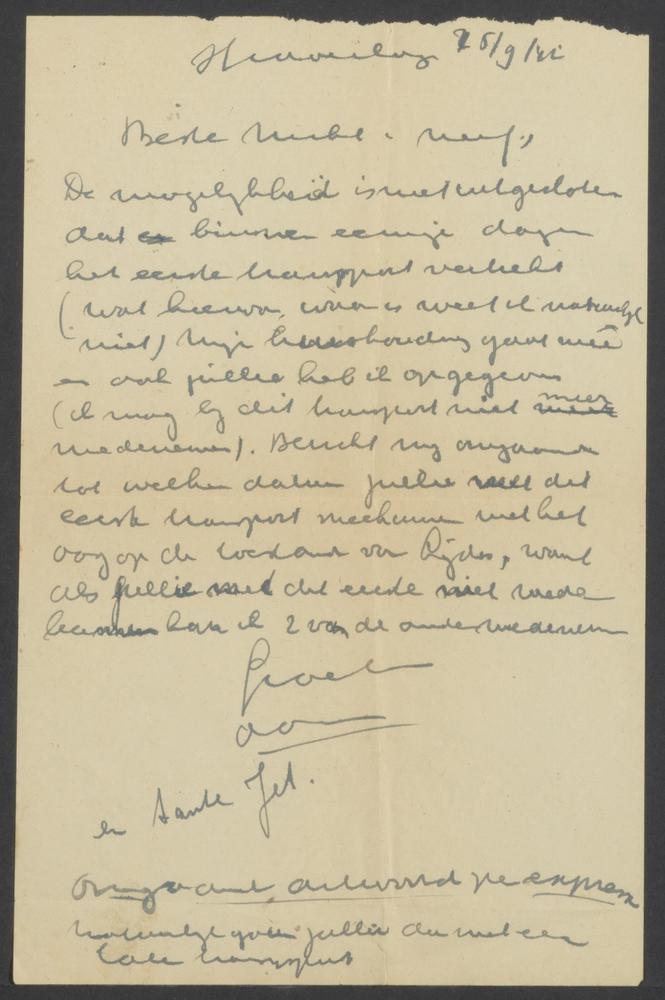 25/9/41
Beste nicht & neef,
De mogelijkheid is niet uitgesloten
dat er binnen eenige dagen
het eerste transport vertrekt
(wat hiervan waar is weet ik natuurlijk
niet) Mijn huishouding gaat meê
en ook jullie heb ik opgegeven
(ik mag bij dit transport niet meer
medenemen). Bericht mij omgaande
tot welken datum jullie met dit
eerste transport meekunnen met het
oog op de toestand van, want
als jullie met dit eerste niet mede
kunnen kan ik 2 van de andere medenemen
Groeten
oom
en tante Jet.
Omgaand antwoord per expresse
natuurlijk gaan jullie dan met een
later transport